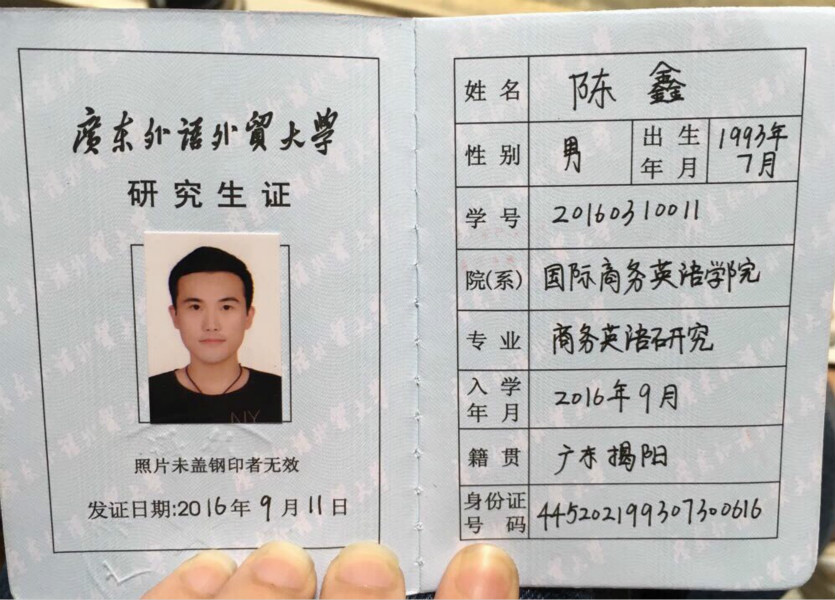 廣东外语外貿大学
研究生证
NY
照片未盖钢印者无效
发证日期:2016年9月11日
姓名 陈鑫
性别 男 出生年月 1993年7月
学号 20160310011
院(系) 国际商务英语学院
专业 商务英语研究
入学年月 2016年9月
籍贯 广东揭阳
身份证号码 445202199307300616